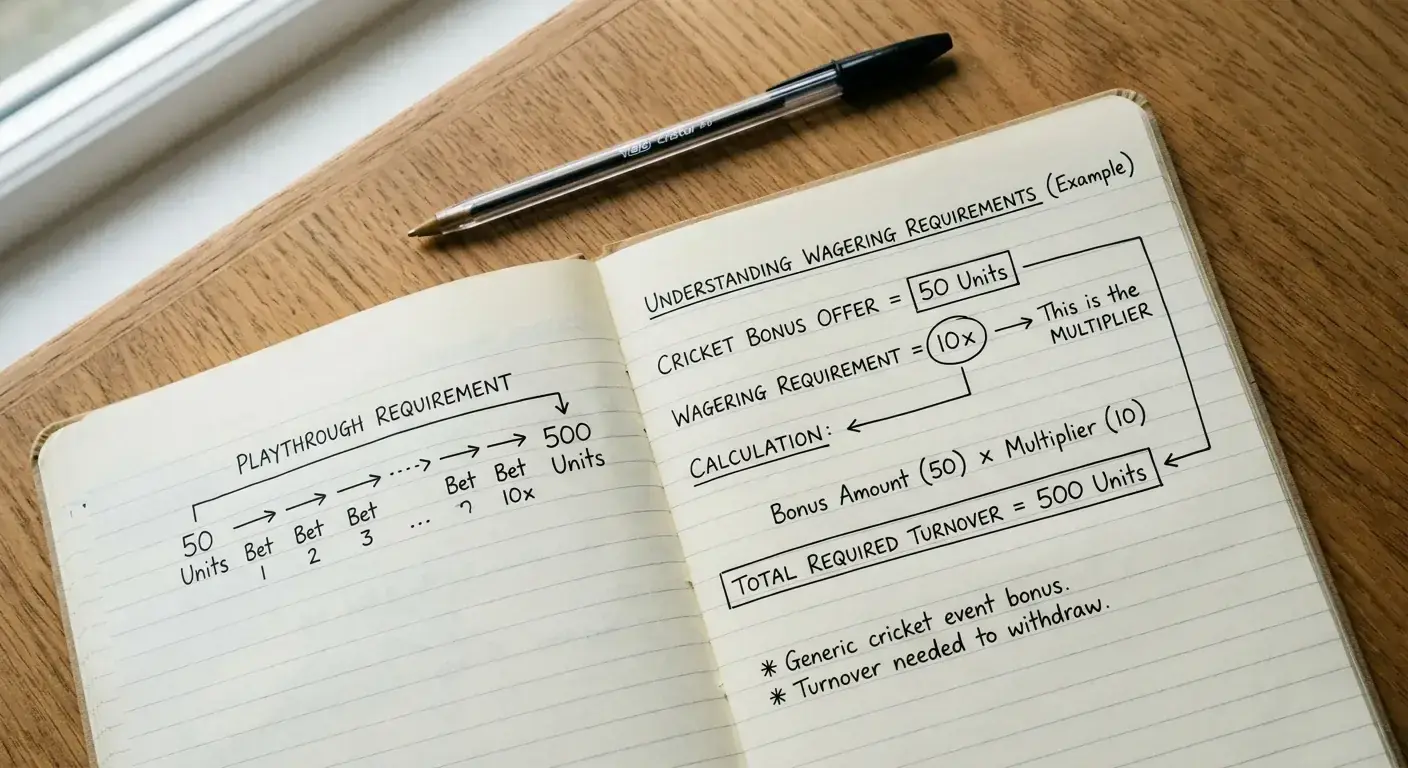 BIC Cristal
PLAYTHROUGH REQUIREMENT
50 Units → Bet 1 → Bet 2 → Bet 3 ....→ ... Bet → Bet 10x → 500 Units
UNDERSTANDING WAGERING REQUIREMENTS (Example)
CRICKET BONUS OFFER = 50 Units
WAGERING REQUIREMENT = 10x → This is the MULTIPLIER
CALCULATION:
Bonus Amount (50) × Multiplier (10)
TOTAL REQUIRED TURNOVER = 500 Units
* Generic cricket event bonus.
* Turnover needed to withdraw.